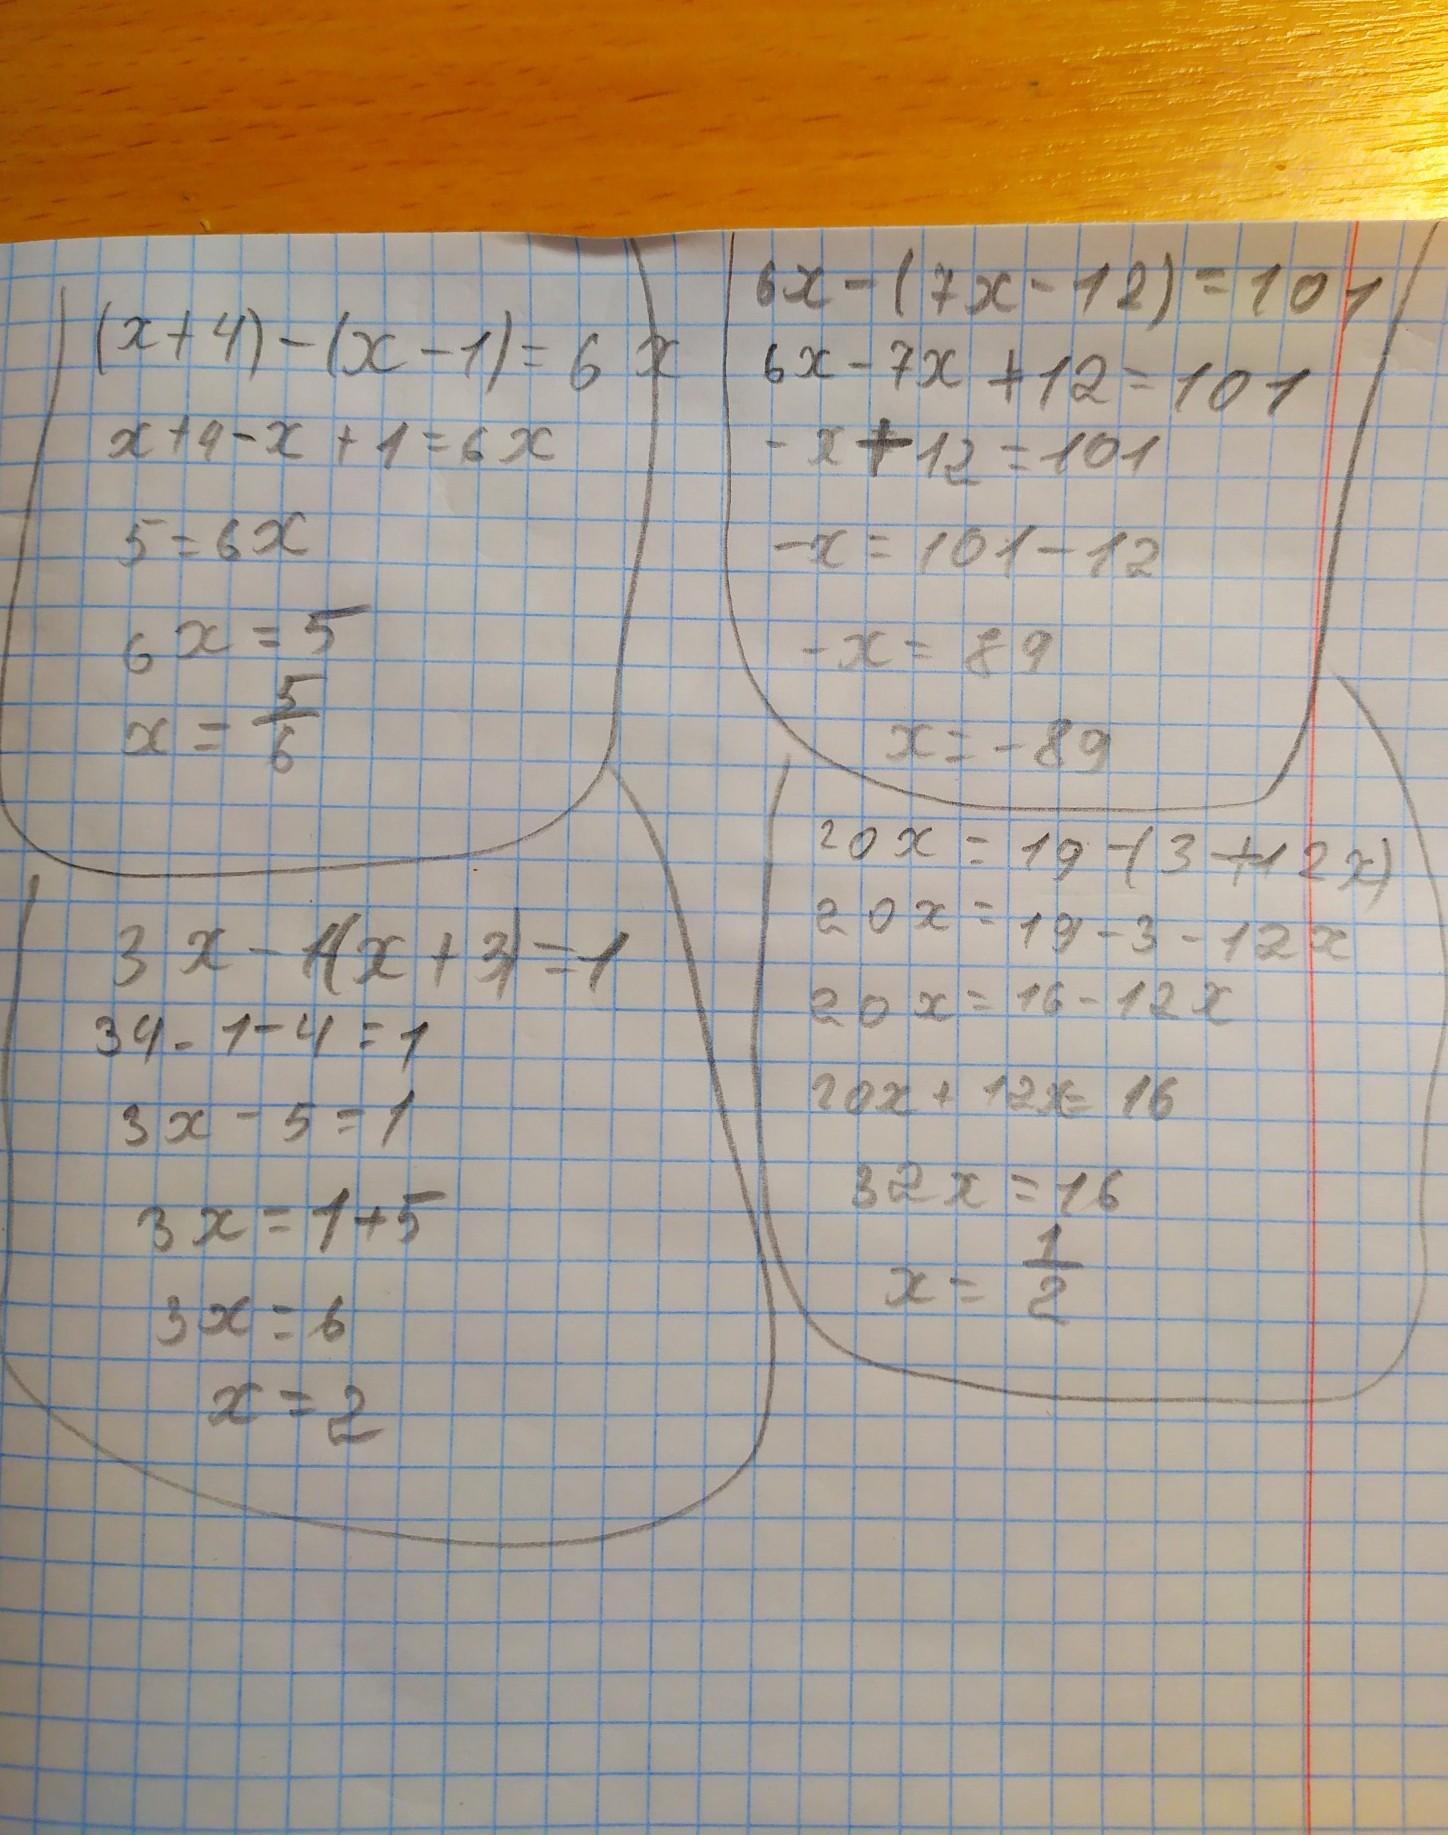 (x+4)-(x-1)=6x
x+4-x+1=6x
5=6x
6x=5
x=5/6
6x-(7x-12)=101
6x-7x+12=101
-x+12=101
-x=101-12
-x=89
x=-89
3x-1(x+3)=1
34-1-4=1
3x-5=1
3x=1+5
3x=6
x=2
20x=19-(3+12x)
20x=19-3-12x
20x=16-12x
20x+12x=16
32x=16
x=1/2